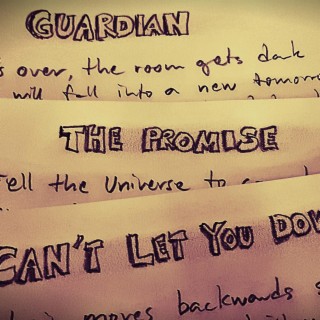 GUARDIAN
s over, the room gets dark
will fall into a new tomorr
THE PROMISE
Tell the Universe to
CAN'T LET YOU DOW
moves backwards s